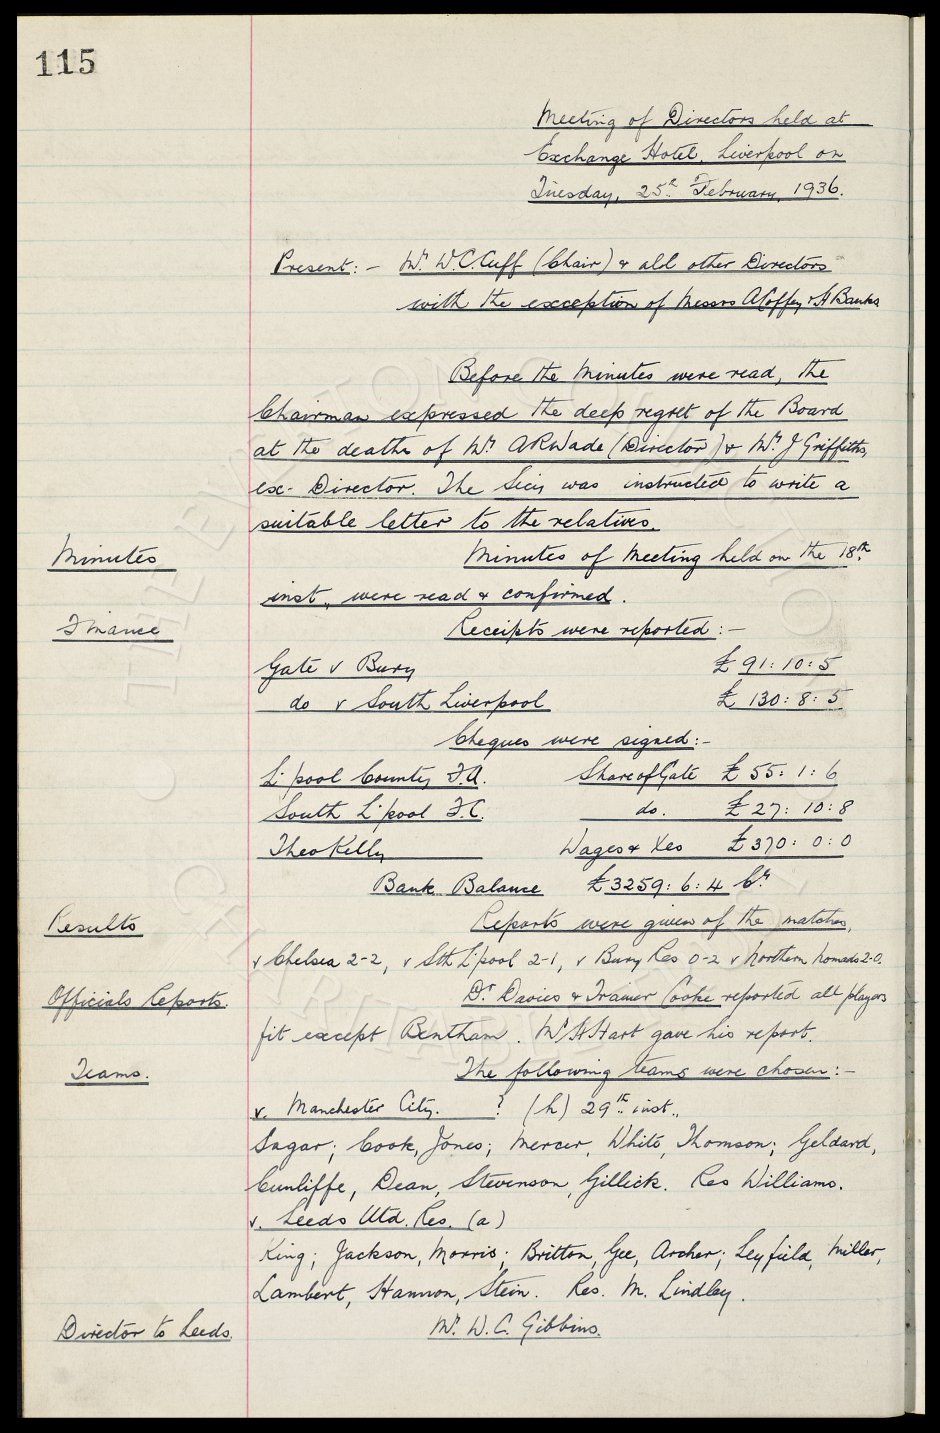 115
Meeting of Directors held at
Exchange Hotel, Liverpool on
Tuesday, 25th February, 1936.
Present:- Mr W.C. Cuff (Chair) & all other Directors
with the exception of Messrs A Coffey & H Banks
Before the Minutes were read, the
Chairman expressed the deep regret of the Board
at the deaths of Mr A R Wade (Director) & Mr J Griffiths,
ex-Director. The Secy was instructed to write a
suitable letter to the relatives.
Minutes Minutes of Meeting held on the 18th
inst., were read & confirmed.
Finance Receipts were reported:-
Gate v Bury £91:10:5
do v South Liverpool £130:8:5
Cheques were signed:-
L'pool County F.A. Share of Gate £55:1:6
South L'pool F.C. do. £27:10:8
Theo Kelly Wages & Xes £370:0:0
Bank Balance £3259:6:4 Cr
Results Reports were given of the matches,
v Chelsea 2-2, v Sth L'pool 2-1, v Bury Res 0-2 v Northern Nomads 2-0.
Officials Reports. Dr Davies & Trainer Cooke reported all players
fit except Bentham. Mr H Hart gave his report.
Teams. The following teams were chosen:-
v. Manchester City. ? (h) 29th inst.,
Sagar; Cook, Jones; Mercer, White, Thomson; Geldard,
Cunliffe, Dean, Stevenson, Gillick. Res Williams.
v. Leeds Utd. Res. (a)
King; Jackson, Morris; Britton, Gee, Archer; Leyfield, Miller,
Lambert, Hannon, Stein. Res. M. Lindley.
Director to Leeds. Mr. W. C. Gibbins.
THE EVERTON COLLECTION
CHARITABLE TRUST